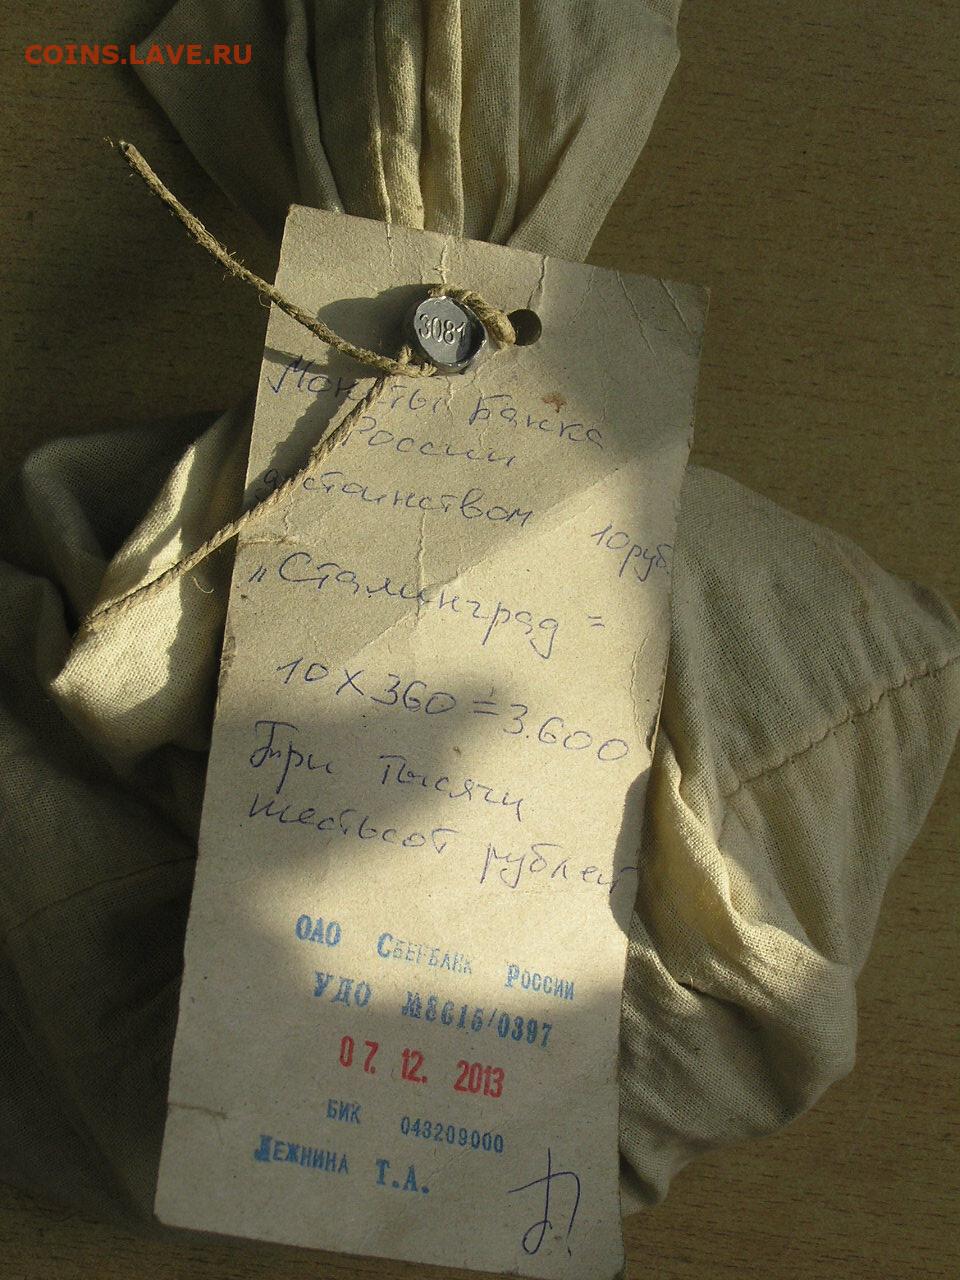 COINS.LAVE.RU
3081
Монеты Банка
России
достоинством 10руб.
„Сталинград =
10 х 360 = 3.600
Три тысячи
шестьсот рублей
ОАО СБЕРБАНК РОССИИ
УДО №8615/0397
07. 12. 2013
БИК 043209000
ЛЕЖНИНА Т.А.